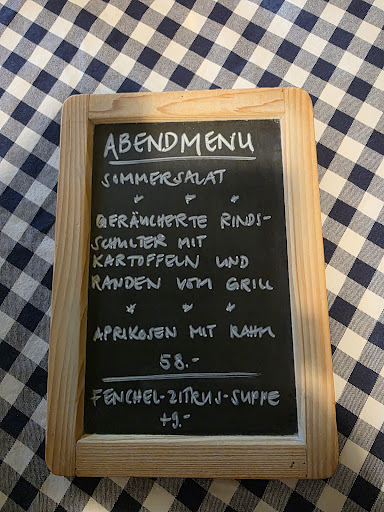 ABENDMENU
SOMMERSALAT
* * *
GERÄUCHERTE RINDS-
SCHULTER MIT
KARTOFFELN UND
RANDEN VOM GRILL
* * *
APRIKOSEN MIT RAHM
58.-
FENCHEL-ZITRUS-SUPPE
+9.-